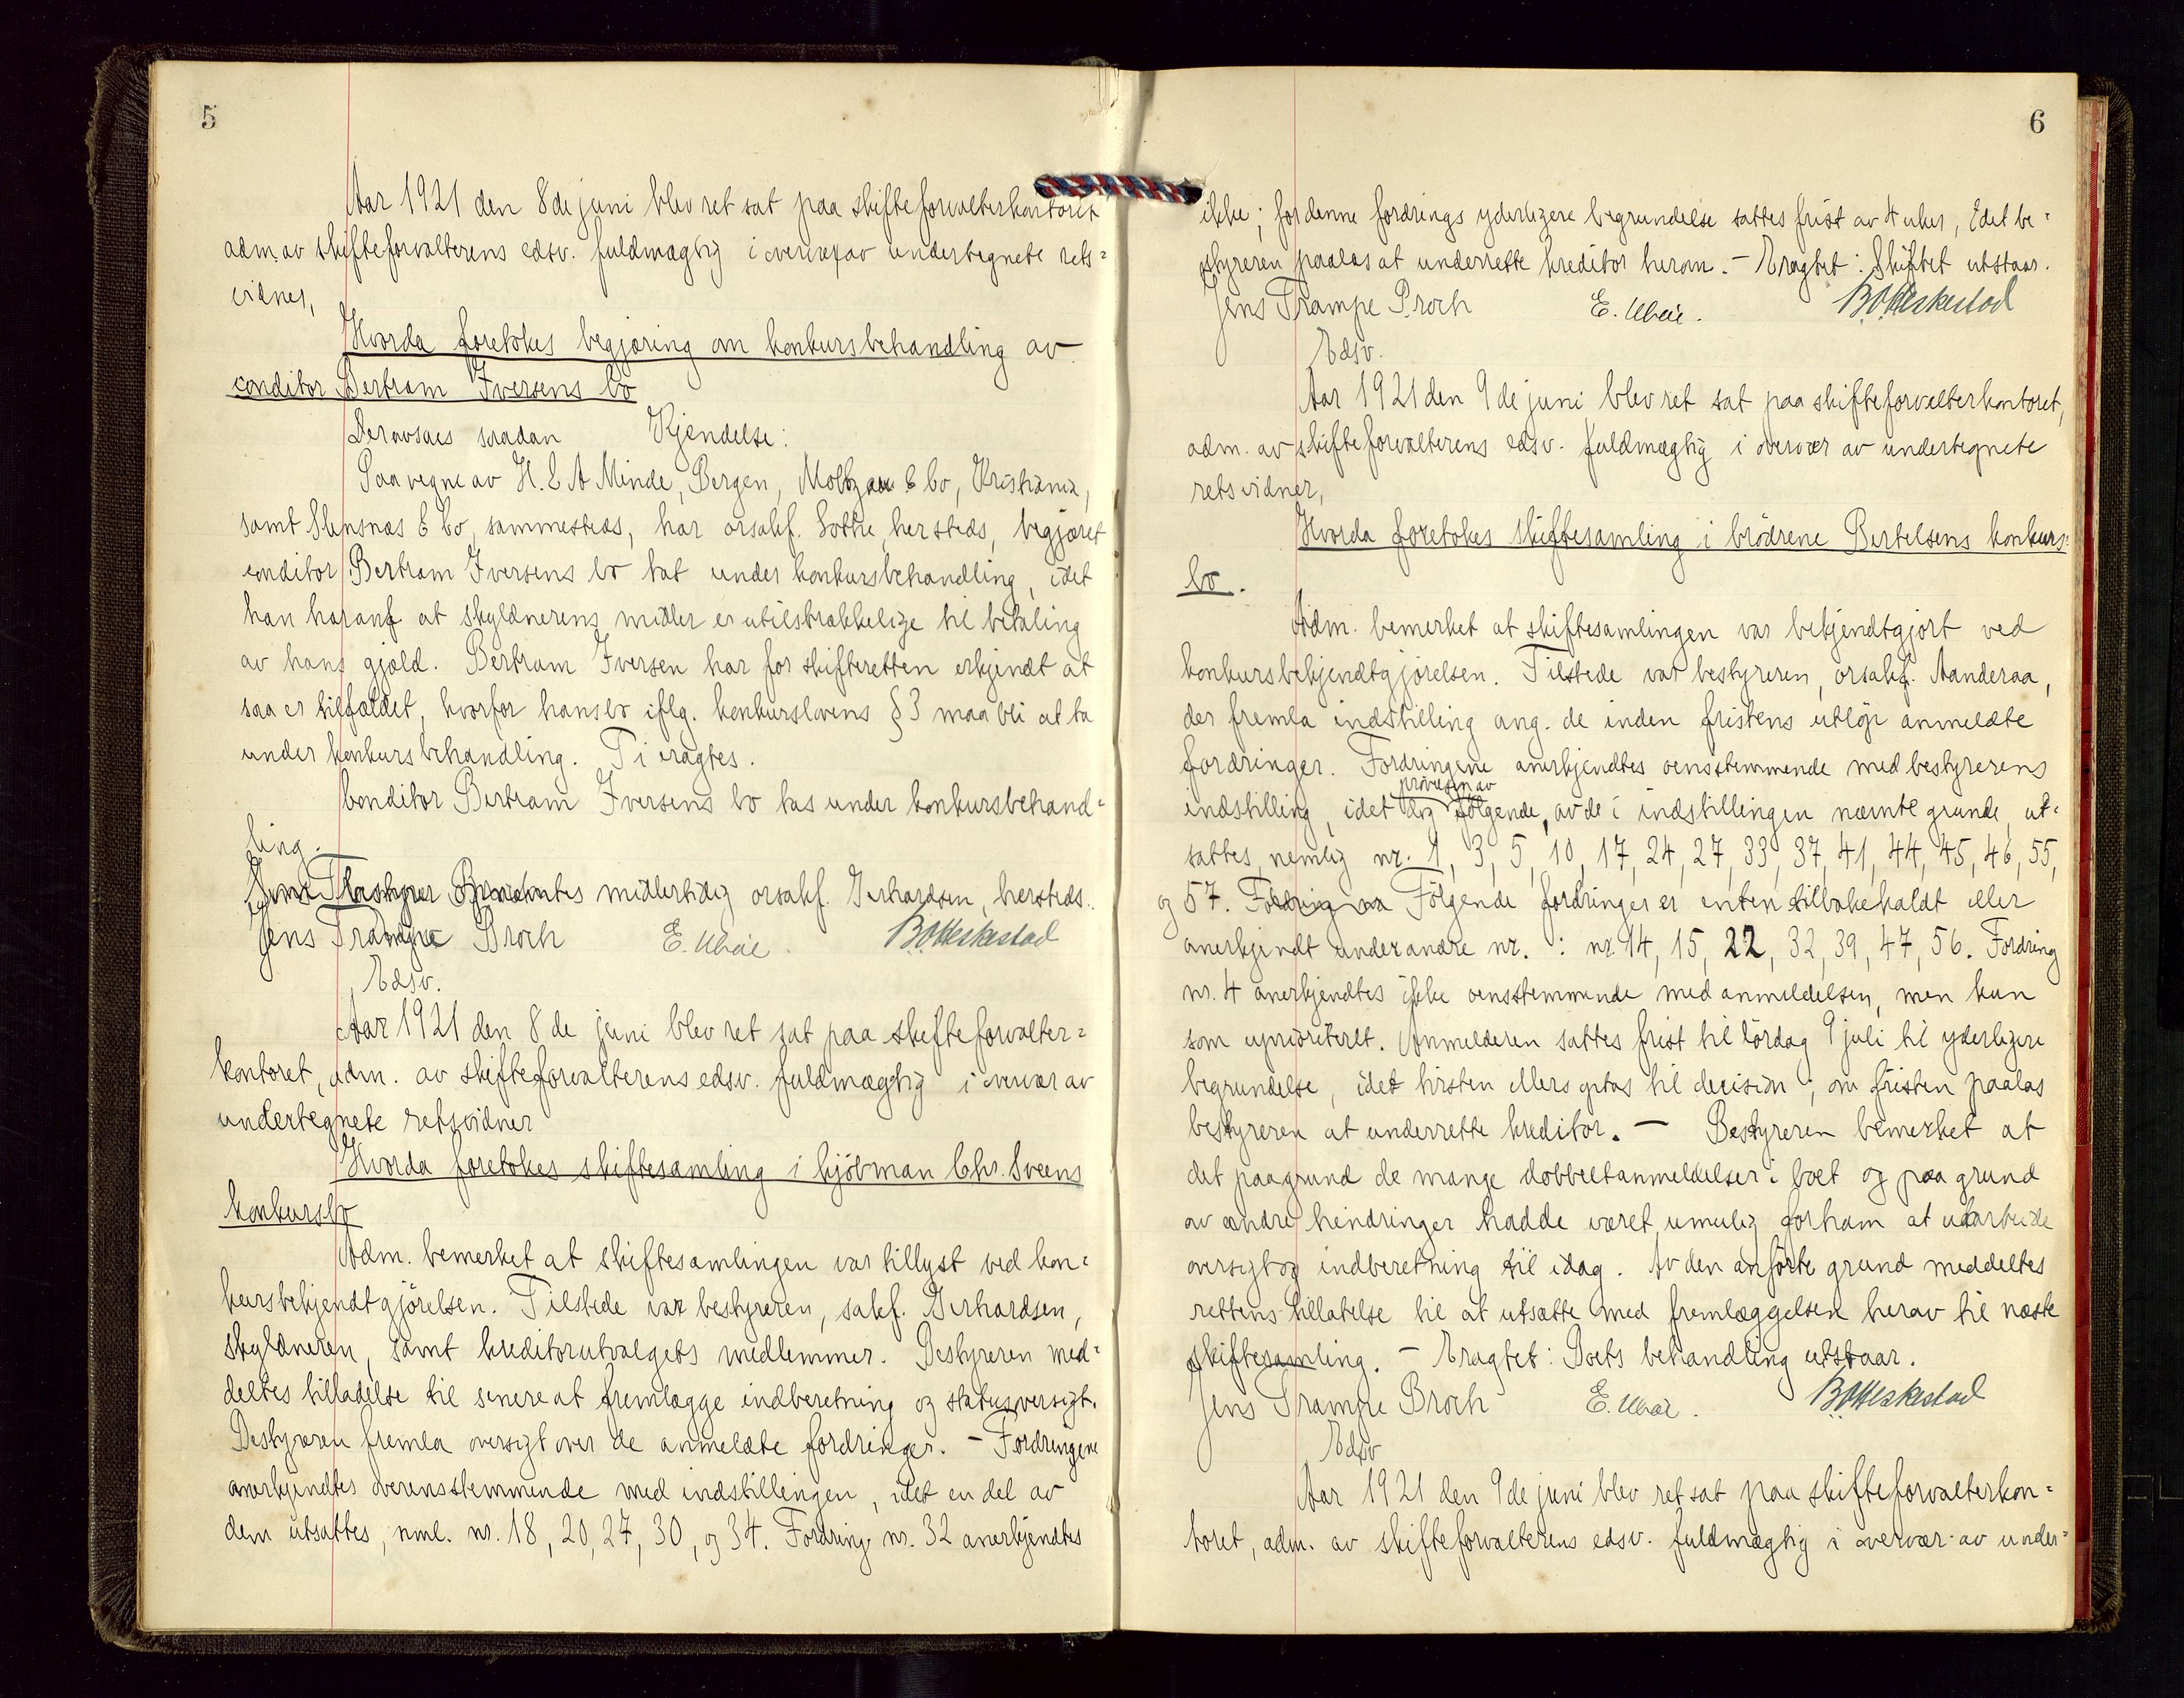 5
Aar 1921 den 8de juni blev ret sat paa skifteforvalterkontoret
adm. av skifteforvalterens edsv. fuldmægtig i overvær av undertegnete rets=
vidner,
Hvorda foretokes begjæring om konkursbehandling av
conditor Bertram Iversens bo
Deravsaes saadan Kjendelse:
Paa vegne av H. & A Minde, Bergen, Moltzau & Co, Kristiania,
samt Stensnæs & Co, sammesteds, har orsakf. Sottre, hersteds, begjæret
conditor Bertram Iversens bo tat under konkursbehandling, idet
han har anf at skyldnerens midler er utilstrækkelige til betaling
av hans gjæld. Bertram Iversen har for skifteretten erkjendt at
saa er tilfældet, hvorfor hans bo iflg. konkurslovens § 3 maa bli at ta
under konkursbehandling. Ti eragtes.
Conditor Bertram Iversens bo tas under konkursbehand=
ling.
midlertidig orsakf. Gerhardsen, hersteds.
Jens Trampe Broch E. Ubøe. B.O. Heskestad
Edsv.
Aar 1921 den 8 de juni blev ret sat paa skifteforvalter=
kontoret, adm. av skifteforvalterens edsv. fuldmægtig i overvær av
undertegnete retsvidner
Hvorda foretokes skiftesamling i kjöbman Chr. Sveens
konkursbo
Adm. bemerket at skiftesamlingen var tillyst ved kon=
kursbekjendtgjörelsen. Tilstede var bestyreren, sakf. Gerhardsen,
skyldneren, samt kreditorutvalgets medlemmer. Bestyreren med=
deltes tilladelse til senere at fremlægge indberetning og statusoversigt.
Bestyreren fremla oversigt over de anmeldte fordringer. - Fordringene
anerkjendtes overensstemmende med indstillingen, idet en del av
dem utsattes, nml. nr. 18, 20, 27, 30, og 34. Fordring nr. 32 anerkjendtes
6
ikke; for denne fordrings yderligere begrundelse sattes frist av 4 uker, idet be=
styreren paalas at underrette kreditor herom. - Eragtet: Skiftet utstaar.
Jens Trampe Broch E. Ubøe. B.O. Heskestad
Edsv.
Aar 1921 den 9 de juni blev ret sat paa skifteforvalterkontoret,
adm. av skifteforvalterens edsv. fuldmægtig i overvær av undertegnete
retsvidner,
Hvorda foretokes skiftesamling i brödrene Bertelsens konkurs=
bo.
Adm. bemerket at skiftesamlingen var bekjendtgjort ved
konkursbekjendtgjörelsen. Tilstede var bestyreren, orsakf. Aanderaa,
der fremla indstilling ang. de inden fristens utlöp anmeldte
fordringer. Fordringene anerkjendtes oensstemmende med bestyrerens
prövelsen av
indstilling, idet dog fölgende, av de i indstillingen nævnte grunde, ut=
sattes, nemlig nr. 1, 3, 5, 10, 17, 24, 27, 33, 37, 41, 44, 45, 46, 55,
og 57. Fölgende fordringer er enten tilbakekaldt eller
anerkjendt under andre nr. : nr 14, 15, 22, 32, 39, 47, 56. Fordring
nr. 4 anerkjendtes ikke oensstemmende med anmeldelsen, men kun
som uprioritert. Anmelderen sattes frist til lördag 9 juli til yderligere
begrundelse, idet tvisten ellers optas til decision; om fristen paalas
bestyreren at underrette kreditor. - Bestyreren bemerket at
det paa grund de mange dobbeltanmeldelser i boet og paa grund
av andre hindringer hadde været umulig for ham at utarbeide
oversigt og indberetning til idag. Av den anförte grund meddeltes
rettens tillatelse til at utsætte med fremlæggelsen herav til næste
skiftesamling. - Eragtet: Boets behandling utstaar.
Jens Trampe Broch E. Ubøe. B.O. Heskestad
Edsv
Aar 1921 den 9de juni blev ret sat paa skifteforvalterkon=
toret, adm. av skifteforvalterens edsv. fuldmægtig i overvær av under=